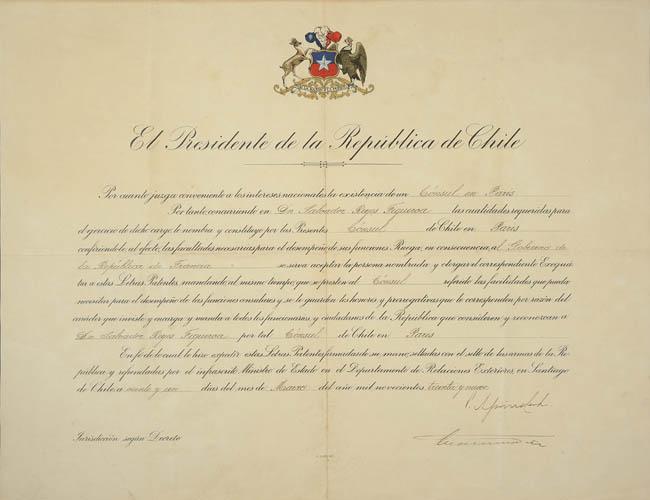 El Presidente de la República de Chile
Por cuanto juzga conveniente a los intereses nacionales la existencia de un Cónsul en París
Por tanto, concurriendo en Dn Salvador Reyes Figueroa las cualidades requeridas para
el ejercicio de dicho cargo, le nombra y constituye por las Presentes Cónsul de Chile en París
confiriéndole al efecto, las facultades necesarias para el desempeño de sus funciones. Ruega, en consecuencia, al Gobierno de
la República de Francia se sirva aceptar la persona nombrada y otorgar el correspondiente Exequá
tur a estas Letras Patentes, mandando, al mismo tiempo, que se presten al Cónsul referido las facilidades que pueda
necesitar para el desempeño de las funciones consulares y se le guarden los honores y prerrogativas que le corresponden por razón del
carácter que inviste y encarga y manda a todos los funcionarios y ciudadanos de la República que consideren y reconozcan a
Dn Salvador Reyes Figueroa por tal Cónsul de Chile en París
En fe de lo cual le hizo expedir estas Letras Patentes firmadas de su mano, selladas con el sello de las armas de la Re
pública y refrendadas por el infrascrito Ministro de Estado en el Departamento de Relaciones Exteriores, en Santiago
de Chile, a veinte y un días del mes de Marzo del año mil novecientos treinta y nueve
Jurisdicción según Decreto